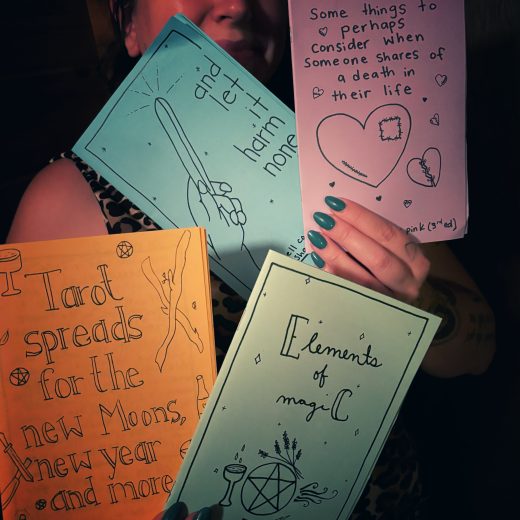 and
let
it
harm
none
Some things to
perhaps
consider when
someone shares of
a death in
their life
pink (3rd ed)
Tarot
spreads
for the
new Moons,
new year
and more
Elements
of
magiC